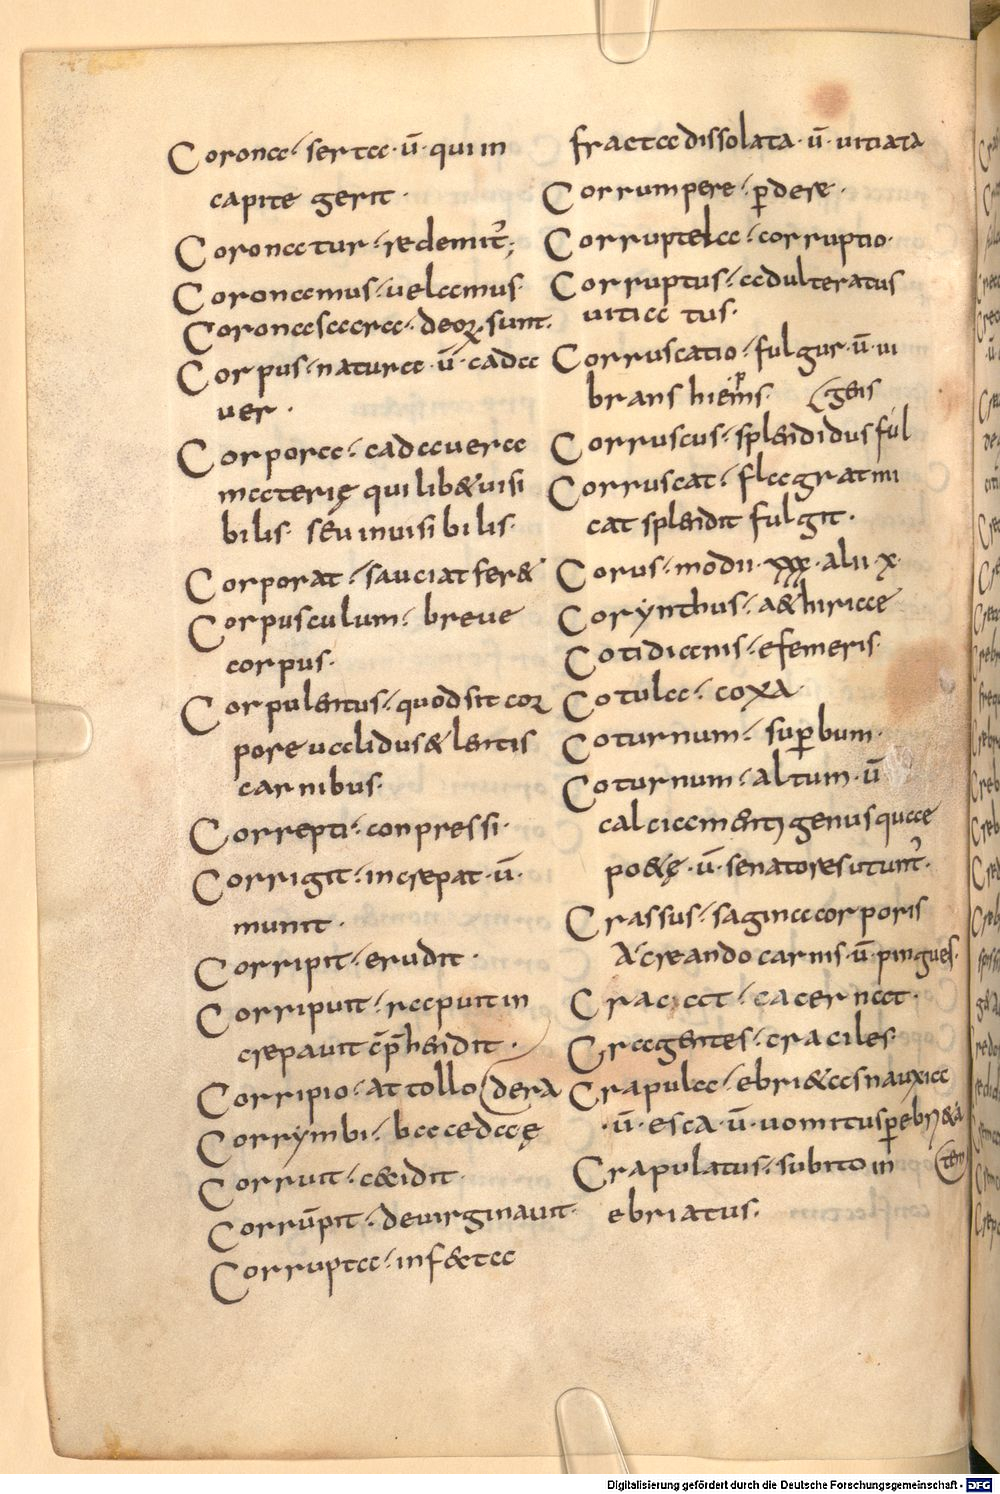 Corona · serta · ū · qui in
capite gerit ·
Coronatur · redemit᷑;
Coronamus · uelamus·
Coronascacra · deoꝝ sunt.
Corpus · natura · ū · cada
uer ·
Corpora · cadauera
materię qui lib& uisi
bilis· seu inuisibilis·
Corporat · sauciat fer&
Corpusculum · breue
corpus·
Corpulentus · quod sit cor
pore ualidus & lentis
carnibus·
Correpti · conpressi·
Corrigit · increpat · ū ·
munit ·
Corripit · erudit ·
Corripuit · rapuit in
crepauit cp̄hendit ·
Corripio · attollo (dera
Corrymbi · bacedaę
Corruit · c&idit·
Corrūpit · deuirginauit·
Corrupta · inf&ta
fracta dissolata · ū · uitiata
Corrumpere · ꝑdere ·
Corruptela · corruptio·
Corruptus · adulteratus
uitia tus·
Corruscatio · fulgur · ū · ui
brans (gens
Corruscus · splendidus ful
Corruscat · flagrat mi
cat splendit fulgit ·
Corus · modii · xxx · alii · x·
Corynthus · a& hiriae
Cotidianis · efemeris·
Cotula · coxa·
Coturnum · suꝑbum·
Coturnum · altum · ū
calciamenti genus quae
po&ę · ū · senatores utunt᷑·
Crassus · sagina corporis
A creando carnis · ū · pingues·
Craciat · cacernat·
Cragentes · craciles·
Crapula · ebri&as nauxia
· ū · esca · ū · uomitus ꝑ
(tem
Crapulatus · subito in
ebriatus·
Digitalisierung gefördert durch die Deutsche Forschungsgemeinschaft - DFG